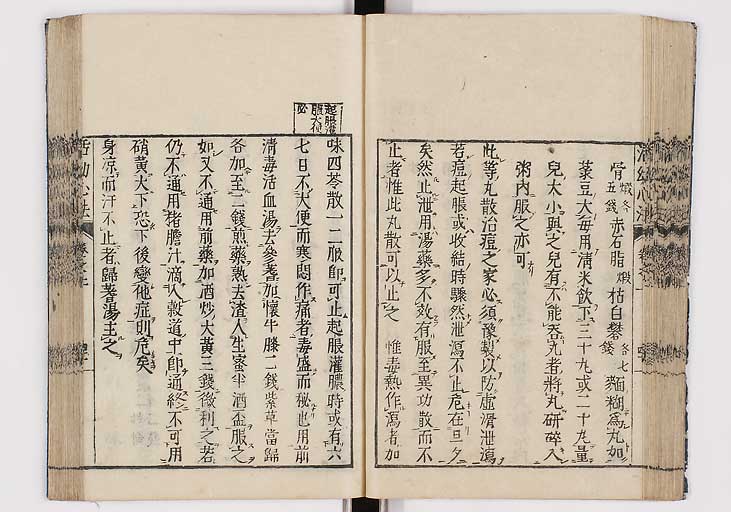 骨煅各五錢赤石脂煅枯白礬各七錢麵糊為丸如
菉豆大每用清米飲下三十丸或二十丸量
兒大小與之兒有不能吞丸者將丸研碎入
粥內服之亦可
此等丸散治痘之家必須豫製以防虛滑泄瀉
若痘起脹或收結時驟然泄瀉不止危在旦夕
矣然止泄用湯藥多不效有服至異功散而不
止者惟此丸散可以止之 惟毒熱作瀉者加
起脹灌
膿大便
必
味四苓散一二服即可止起脹灌膿時或有六
七日不大便而寒悶作痛者毒盛而秘也用前
清毒活血湯去參耆加懷牛膝二錢紫草當歸
各加至二錢煎藥熟去渣人生蜜半酒盃服之
如又不通用前藥加酒炒大黃三錢微利之若
仍不通用猪膽汁滴入穀道中即通終不可用
硝黃大下恐下後變他症則危矣
身凉而汗不止者歸耆湯主之
活幼心法